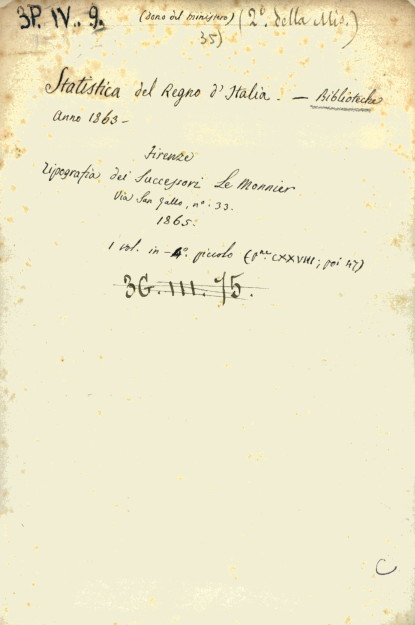 3P. IV.. 9. (dono del ministero) (2º. della Mis.)
35)
Statistica del Regno d'Italia. — Biblioteche
Anno 1863 -
Firenze
Tipografia dei Successori Le Monnier
Via San Gallo, nº. 33.
1865.
1 vol. in - 4º. piccolo (p.ne CXXVIII; poi 47)
3G. III. 15.
C